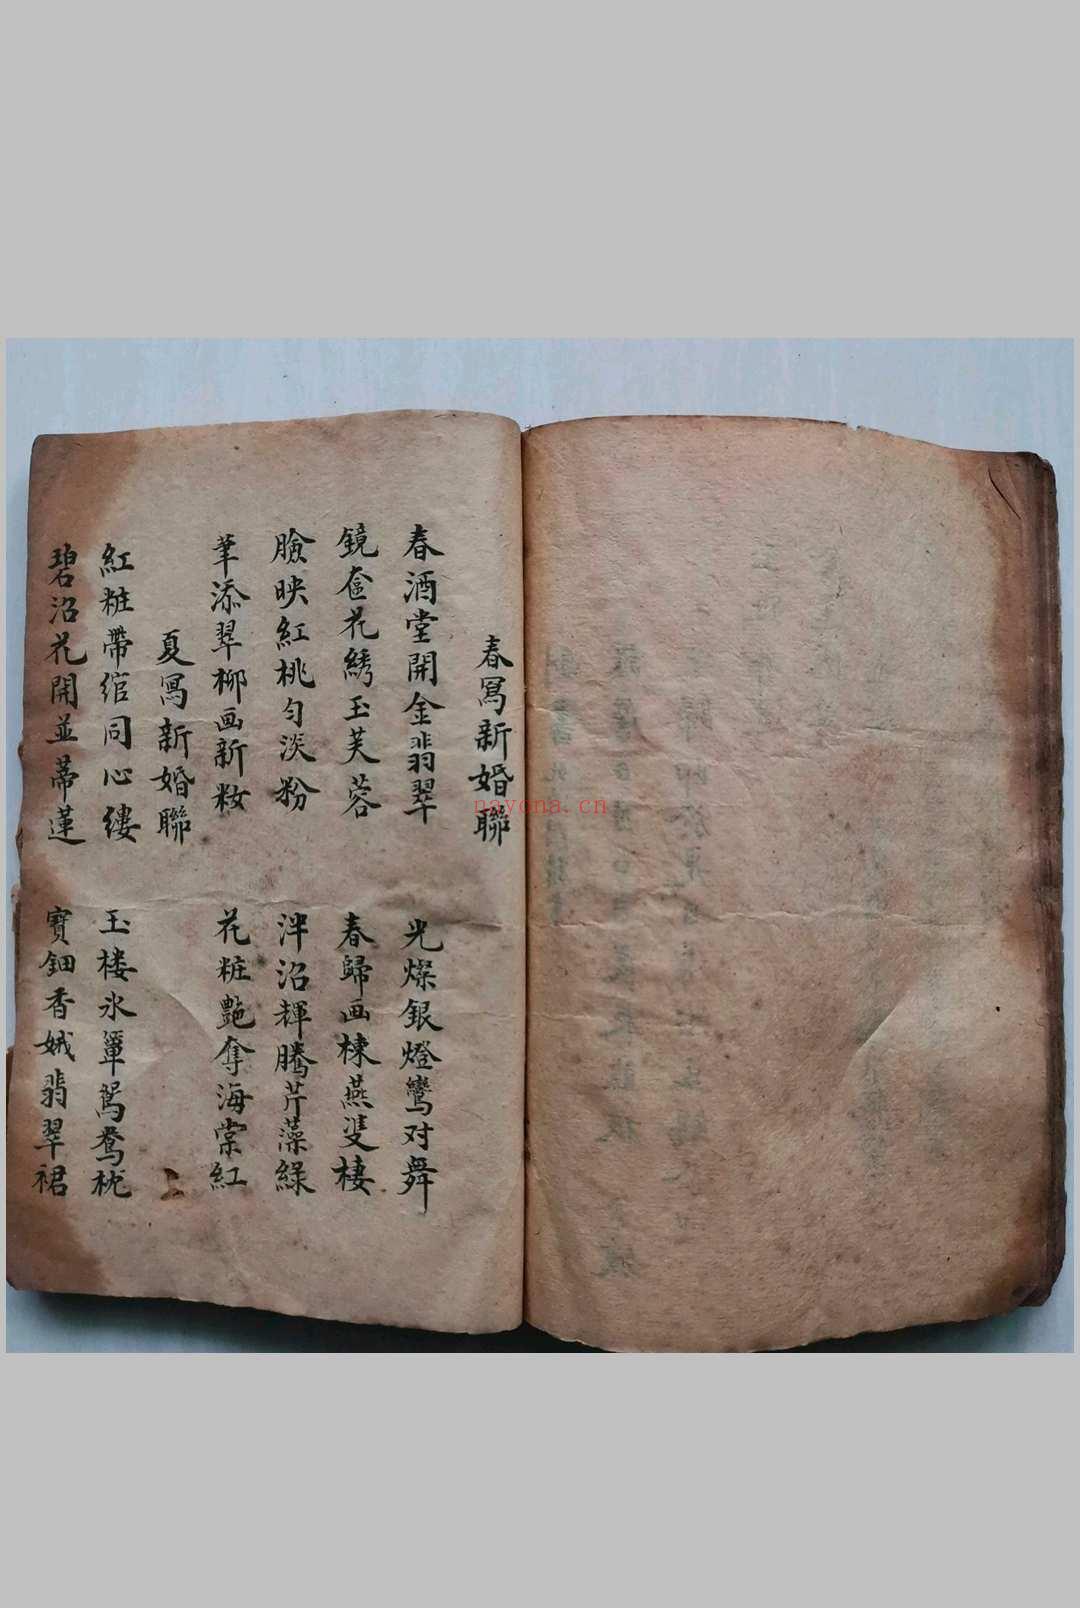 春寫新婚聯
春酒堂開金翡翠 光燦銀燈鸞对舞
鏡奩花綉玉芙蓉 春歸画棟燕雙棲
臉映紅桃匀淡粉 泮沼輝騰芹藻綠
筆添翠柳画新妝 花粧艷奪海棠紅
夏寫新婚聯
紅粧帶綰同心縷 玉楼氷簟鴛鴦枕
碧沼花開並蒂蓮 寳鈿香娥翡翠裙
nayona.cn